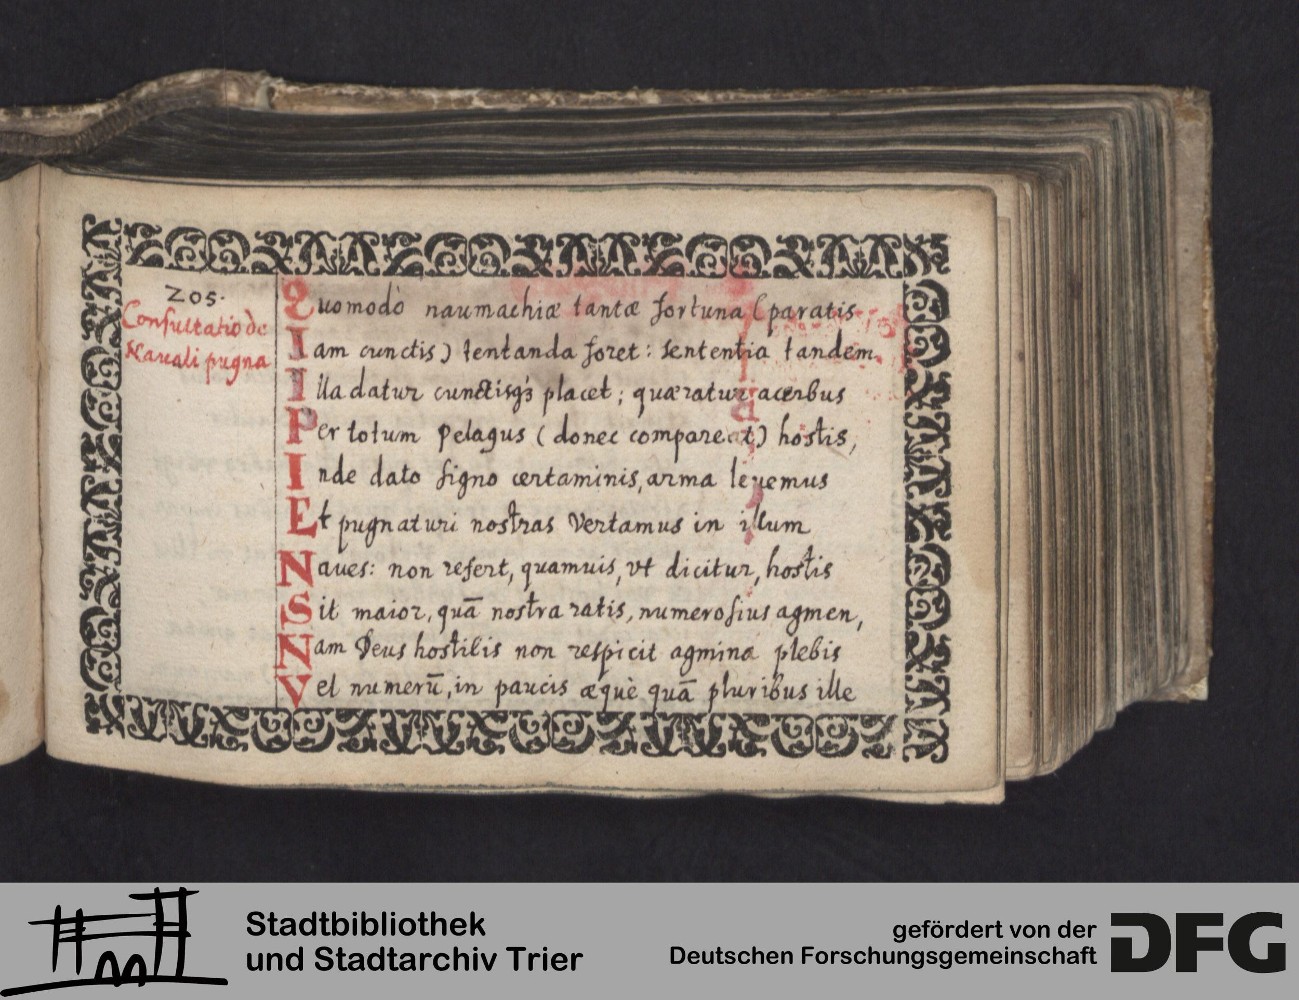 205.
Consultatio de
Nauali pugna
Quomodò naumachiæ tantæ fortuna (paratis
Iam cunctis) tentanda foret: sententia tandem
Illa datur cunctisq́ placet; quæratur acerbus
Per totum Pelagus (donec compareat) hostis,
Inde dato signo certaminis, arma leuemus
Et pugnaturi nostras Vertamus in illum
Naues: non refert, quamuis, vt dicitur, hostis
Sit maior, quā nostra ratis, numerosius agmen,
Nam Deus hostilis non respicit agmina plebis
Vel numerū, in paucis æquè quā pluribus ille
Stadtbibliothek
und Stadtarchiv Trier
gefördert von der
Deutschen Forschungsgemeinschaft
DFG